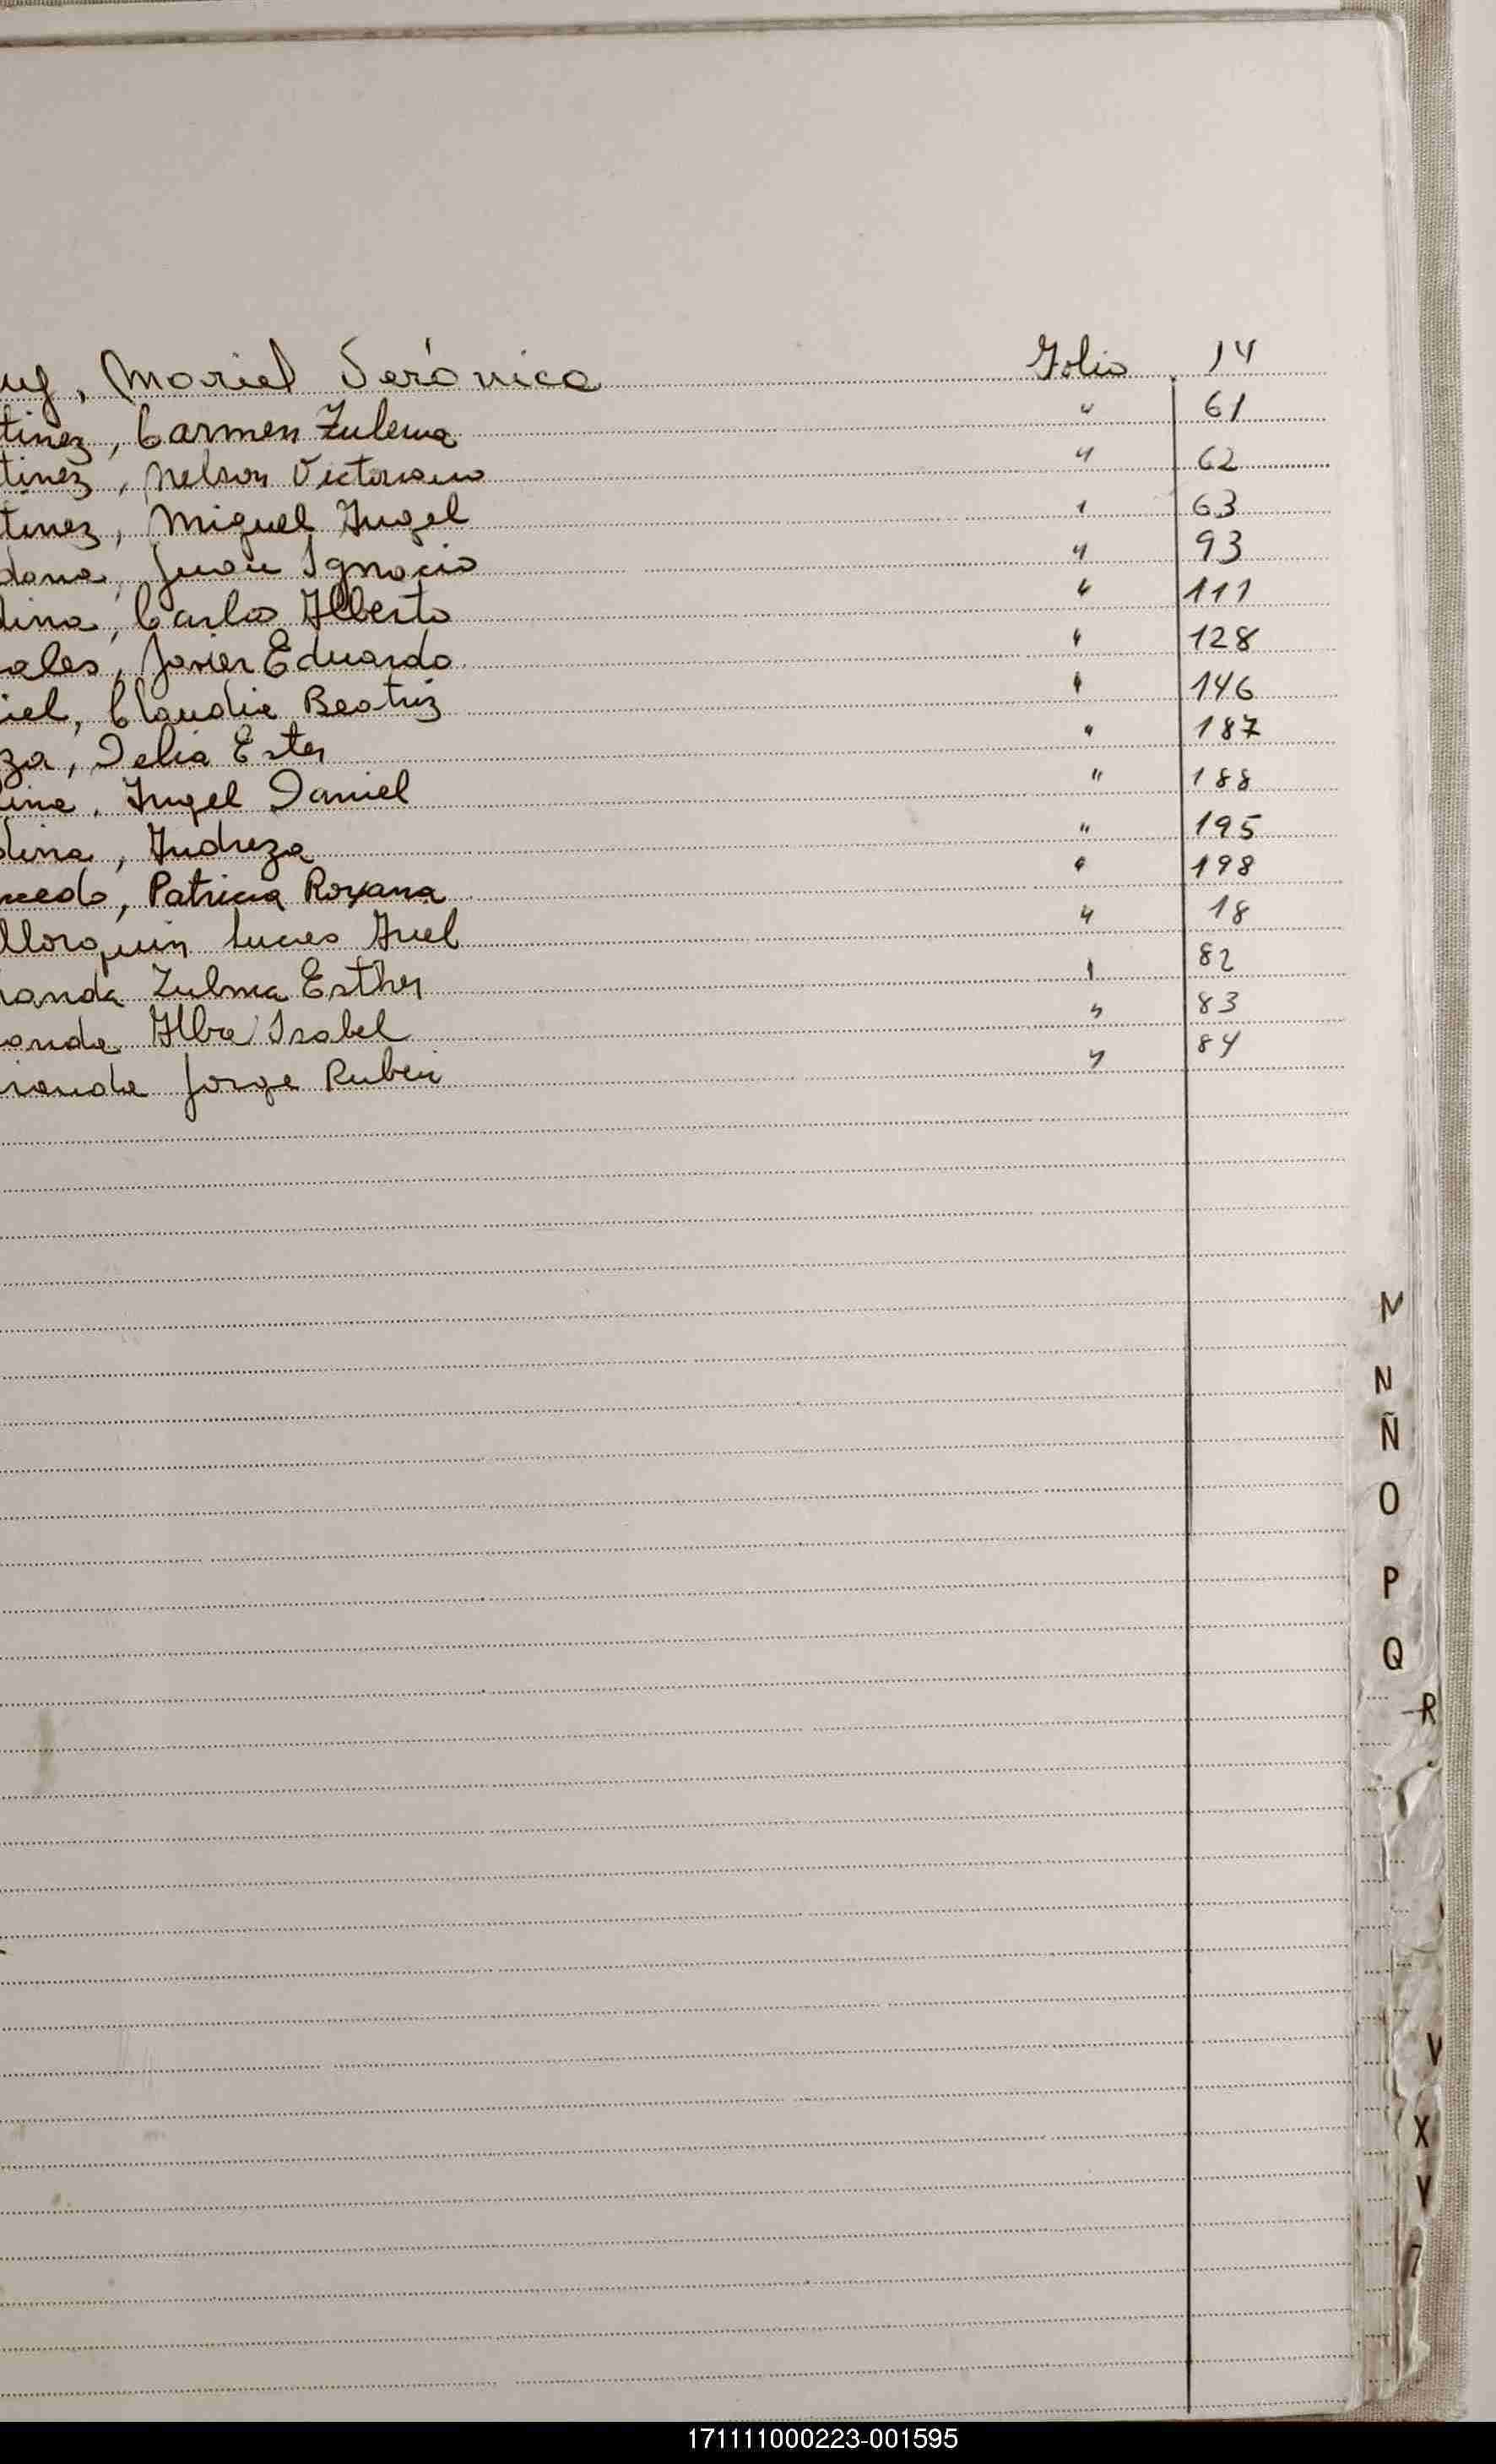 uy, Mariel Verónica Folio 14
tinez, Carmen Zulema " 61
tinez, Nelson Victoriano " 62
tinez, Miguel Angel " 63
dona, Juan Ignacio " 93
dina, Carlos Alberto " 111
ales, Javier Eduardo " 128
iel, Claudia Beatriz " 146
za, Delia Ester " 187
ina, Angel Daniel " 188
dina, Andreza " 195
cedo, Patricia Roxana " 198
llorquin Lucas Ariel " 18
randa Zulma Esther " 82
anda Alba Isabel " 83
randa Jorge Ruben " 84
M
N
Ñ
O
P
Q
R
V
X
Y
Z
171111000223-001595